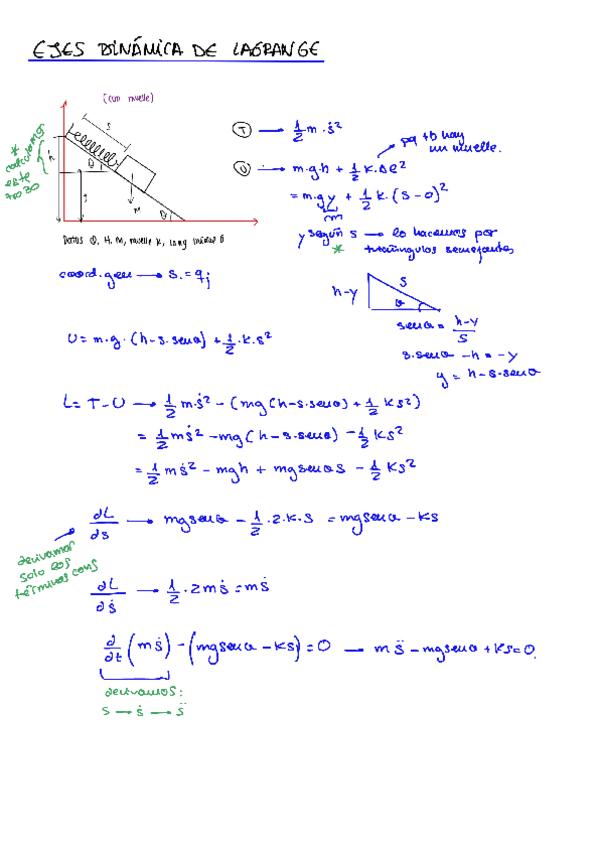 EJES DINÁMICA DE LAGRANGE
(con muelle)
S
* calculamos este trozo
h
θ
y
M
θ
Datos θ, H, M, muelle K, long inicial 0
T → 1/2 m·ṡ²
U → m·g·h + 1/2 K·Δl²
pq tb hay un muelle.
= m·g y + 1/2 K·(S-0)²
y según s → lo hacemos por
* triángulos semejantes
coord. gen → S = qj
h-y
S
θ
senθ = h-y/S
s·senθ - h = -y
y = h-s·senθ
U = m·g·(h-s·senθ) + 1/2·K·s²
L = T-U → 1/2 m·ṡ² - (mg(h-s·senθ) + 1/2 Ks²)
= 1/2 mṡ² - mg(h-s·senθ) - 1/2 Ks²
= 1/2 mṡ² - mgh + mgsenθs - 1/2 Ks²
∂L/∂s → mgsenθ - 1/2·2·K·s = mgsenθ - Ks
derivamos solo los términos con s
∂L/∂ṡ → 1/2·2mṡ = mṡ
∂/∂t (mṡ) - (mgsenθ - Ks) = 0 → ms̈ - mgsenθ + Ks = 0.
derivamos:
s → ṡ → s̈